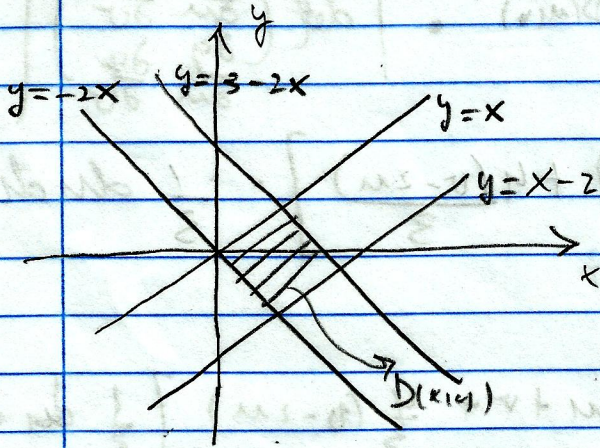 y
y=-2x
y=3-2x
y=x
y=x-2
x
D(x,y)